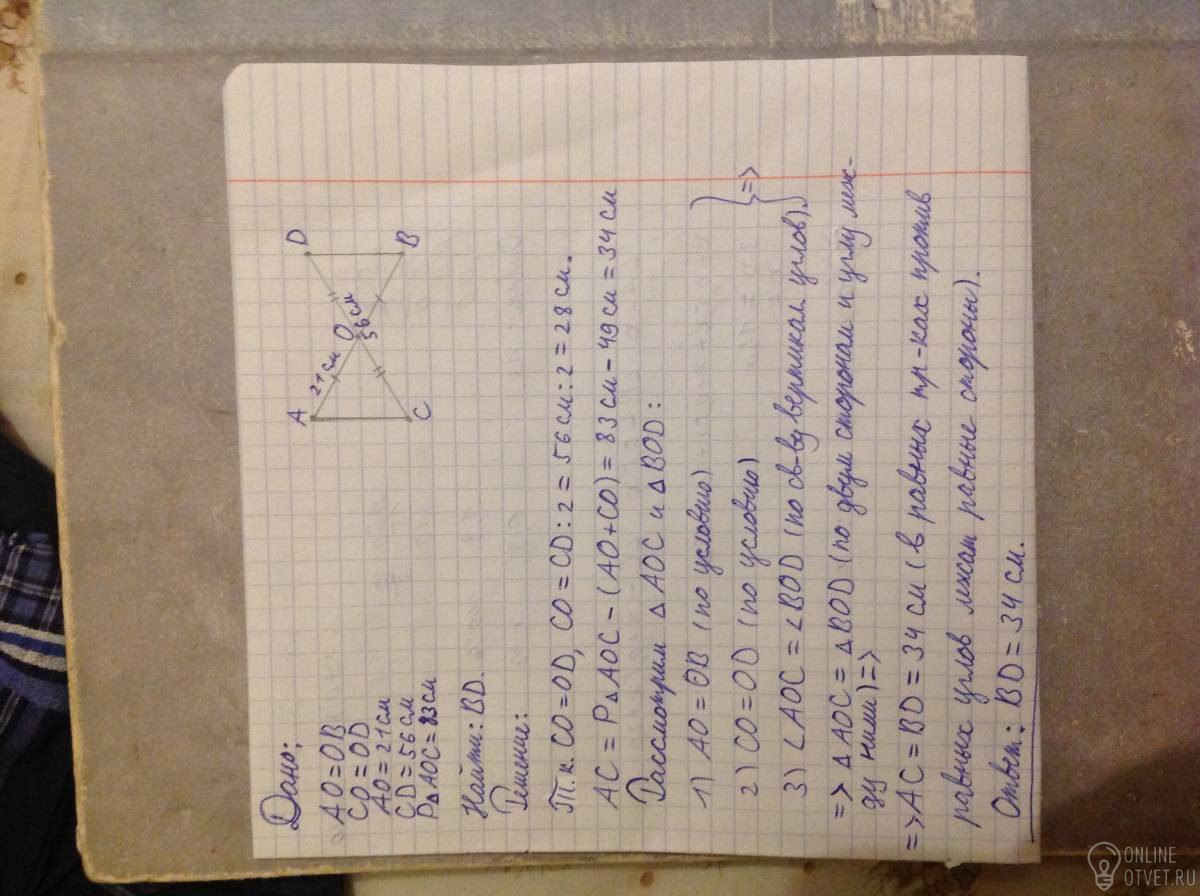 Дано:
AO = OB
CO = OD
AO = 21 см
CD = 56 см
P△AOC = 83 см
A
D
21 см
O
56 см
C
B
Найти: BD.
Решение:
Т.к. CO = OD, CO = CD : 2 = 56 см : 2 = 28 см.
AC = P△AOC − (AO + CO) = 83 см − 49 см = 34 см
Рассмотрим △AOC и △BOD:
1) AO = OB (по условию)
2) CO = OD (по условию) =>
3) ∠AOC = ∠BOD (по св-ву вертикал углов).
=> △AOC = △BOD (по двум сторонам и углу меж-
ду ними) =>
=> AC = BD = 34 см (в равных тр-ках против
равных углов лежат равные стороны).
Ответ: BD = 34 см.
ONLINE
OTVET.RU